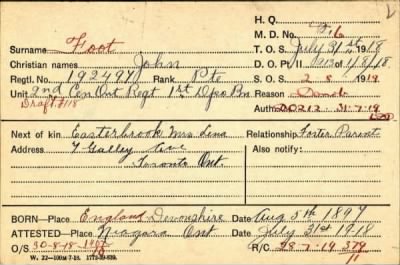 H. Q.
M. D. No.
Surname Foot
T. O. S. July 31st 1918
Christian names John
D. O. Pt. II 213 of 1/8/18
Regtl. No. Rank Pte
S. O. S. 2-8-1919
Unit 2nd Cen Ont Regt 1st Depo Bn
Reason Demob
Draft
Auth. DO212 31-7-19
Next of kin Easterbrook Mrs Lena
Relationship Foster Parent
Address 7 Galley Ave
Also notify:
Toronto Ont.
BORN—Place England Devonshire Date Aug 5th 1897
ATTESTED—Place Niagara Ont Date July 31st 1918
O/S 30-8-18 R/C 28-7-19 379
W. 22—100M 7-18. 1772-39-839.